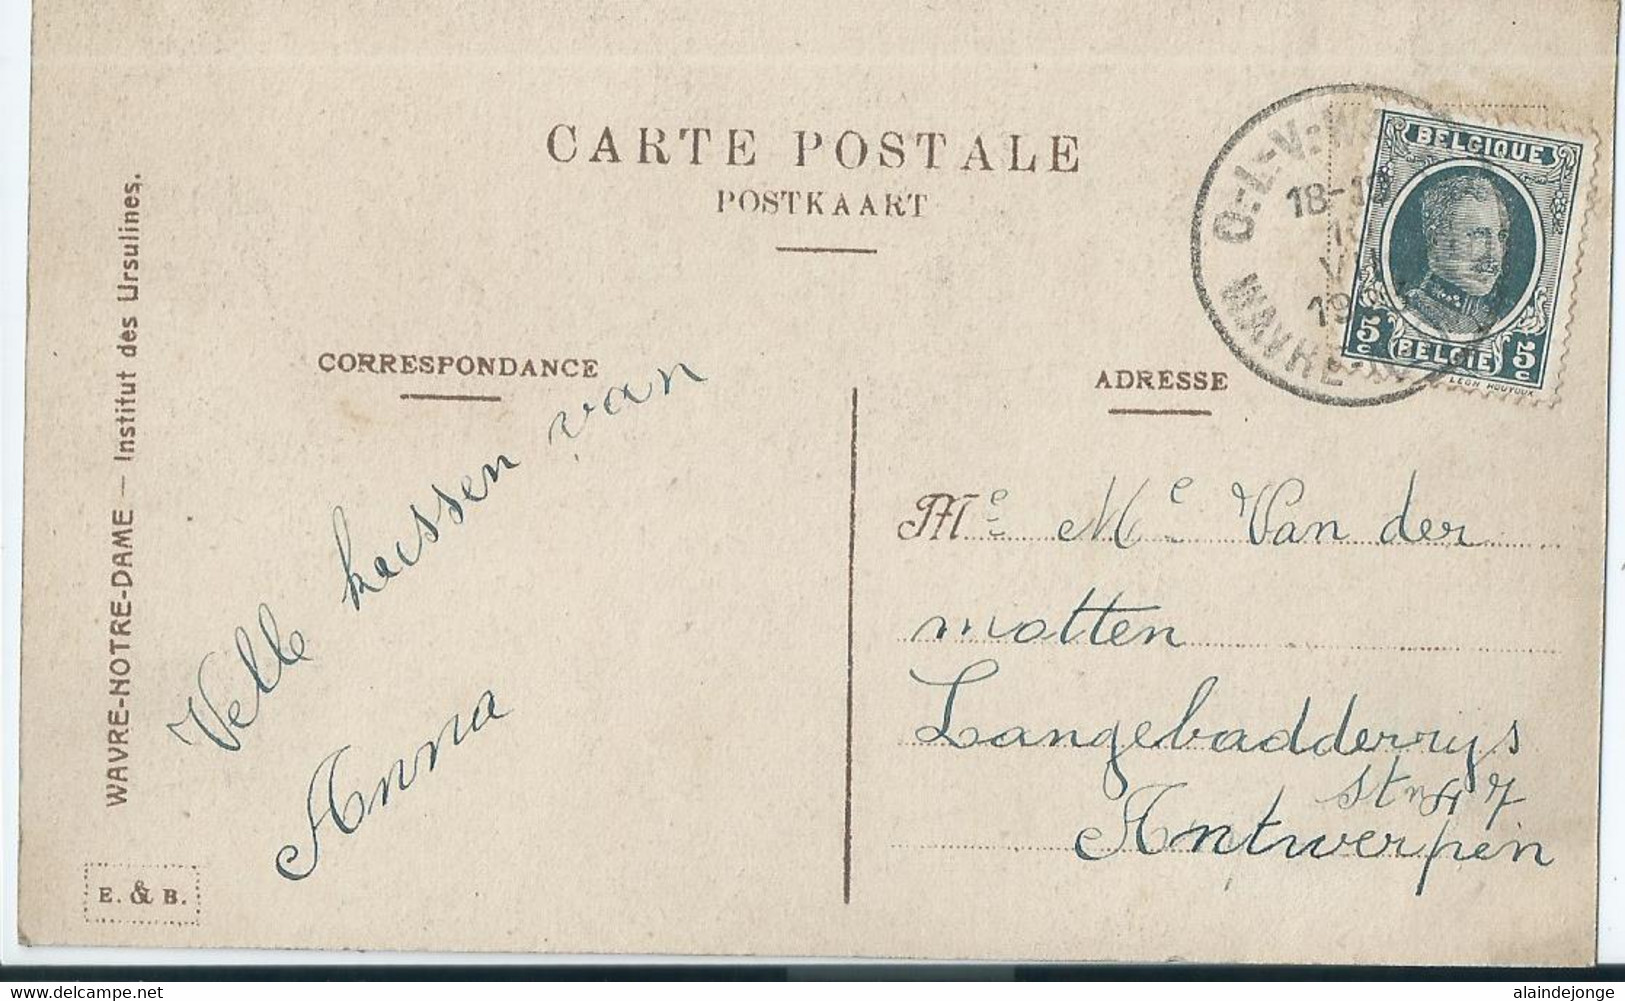 CARTE POSTALE
POSTKAART
WAVRE-NOTRE-DAME — Institut des Ursulines.
CORRESPONDANCE
Velle kussen van
Anna
E. & B.
ADRESSE
O.-L.-V.-W
18-19
WAVRE-N
BELGIQUE
5c BELGIE 5c
LEON HOUYOUX
Me Me Van der
motten
Langebadderrys
st
Antwerpen
www.delcampe.net
alaindejonge